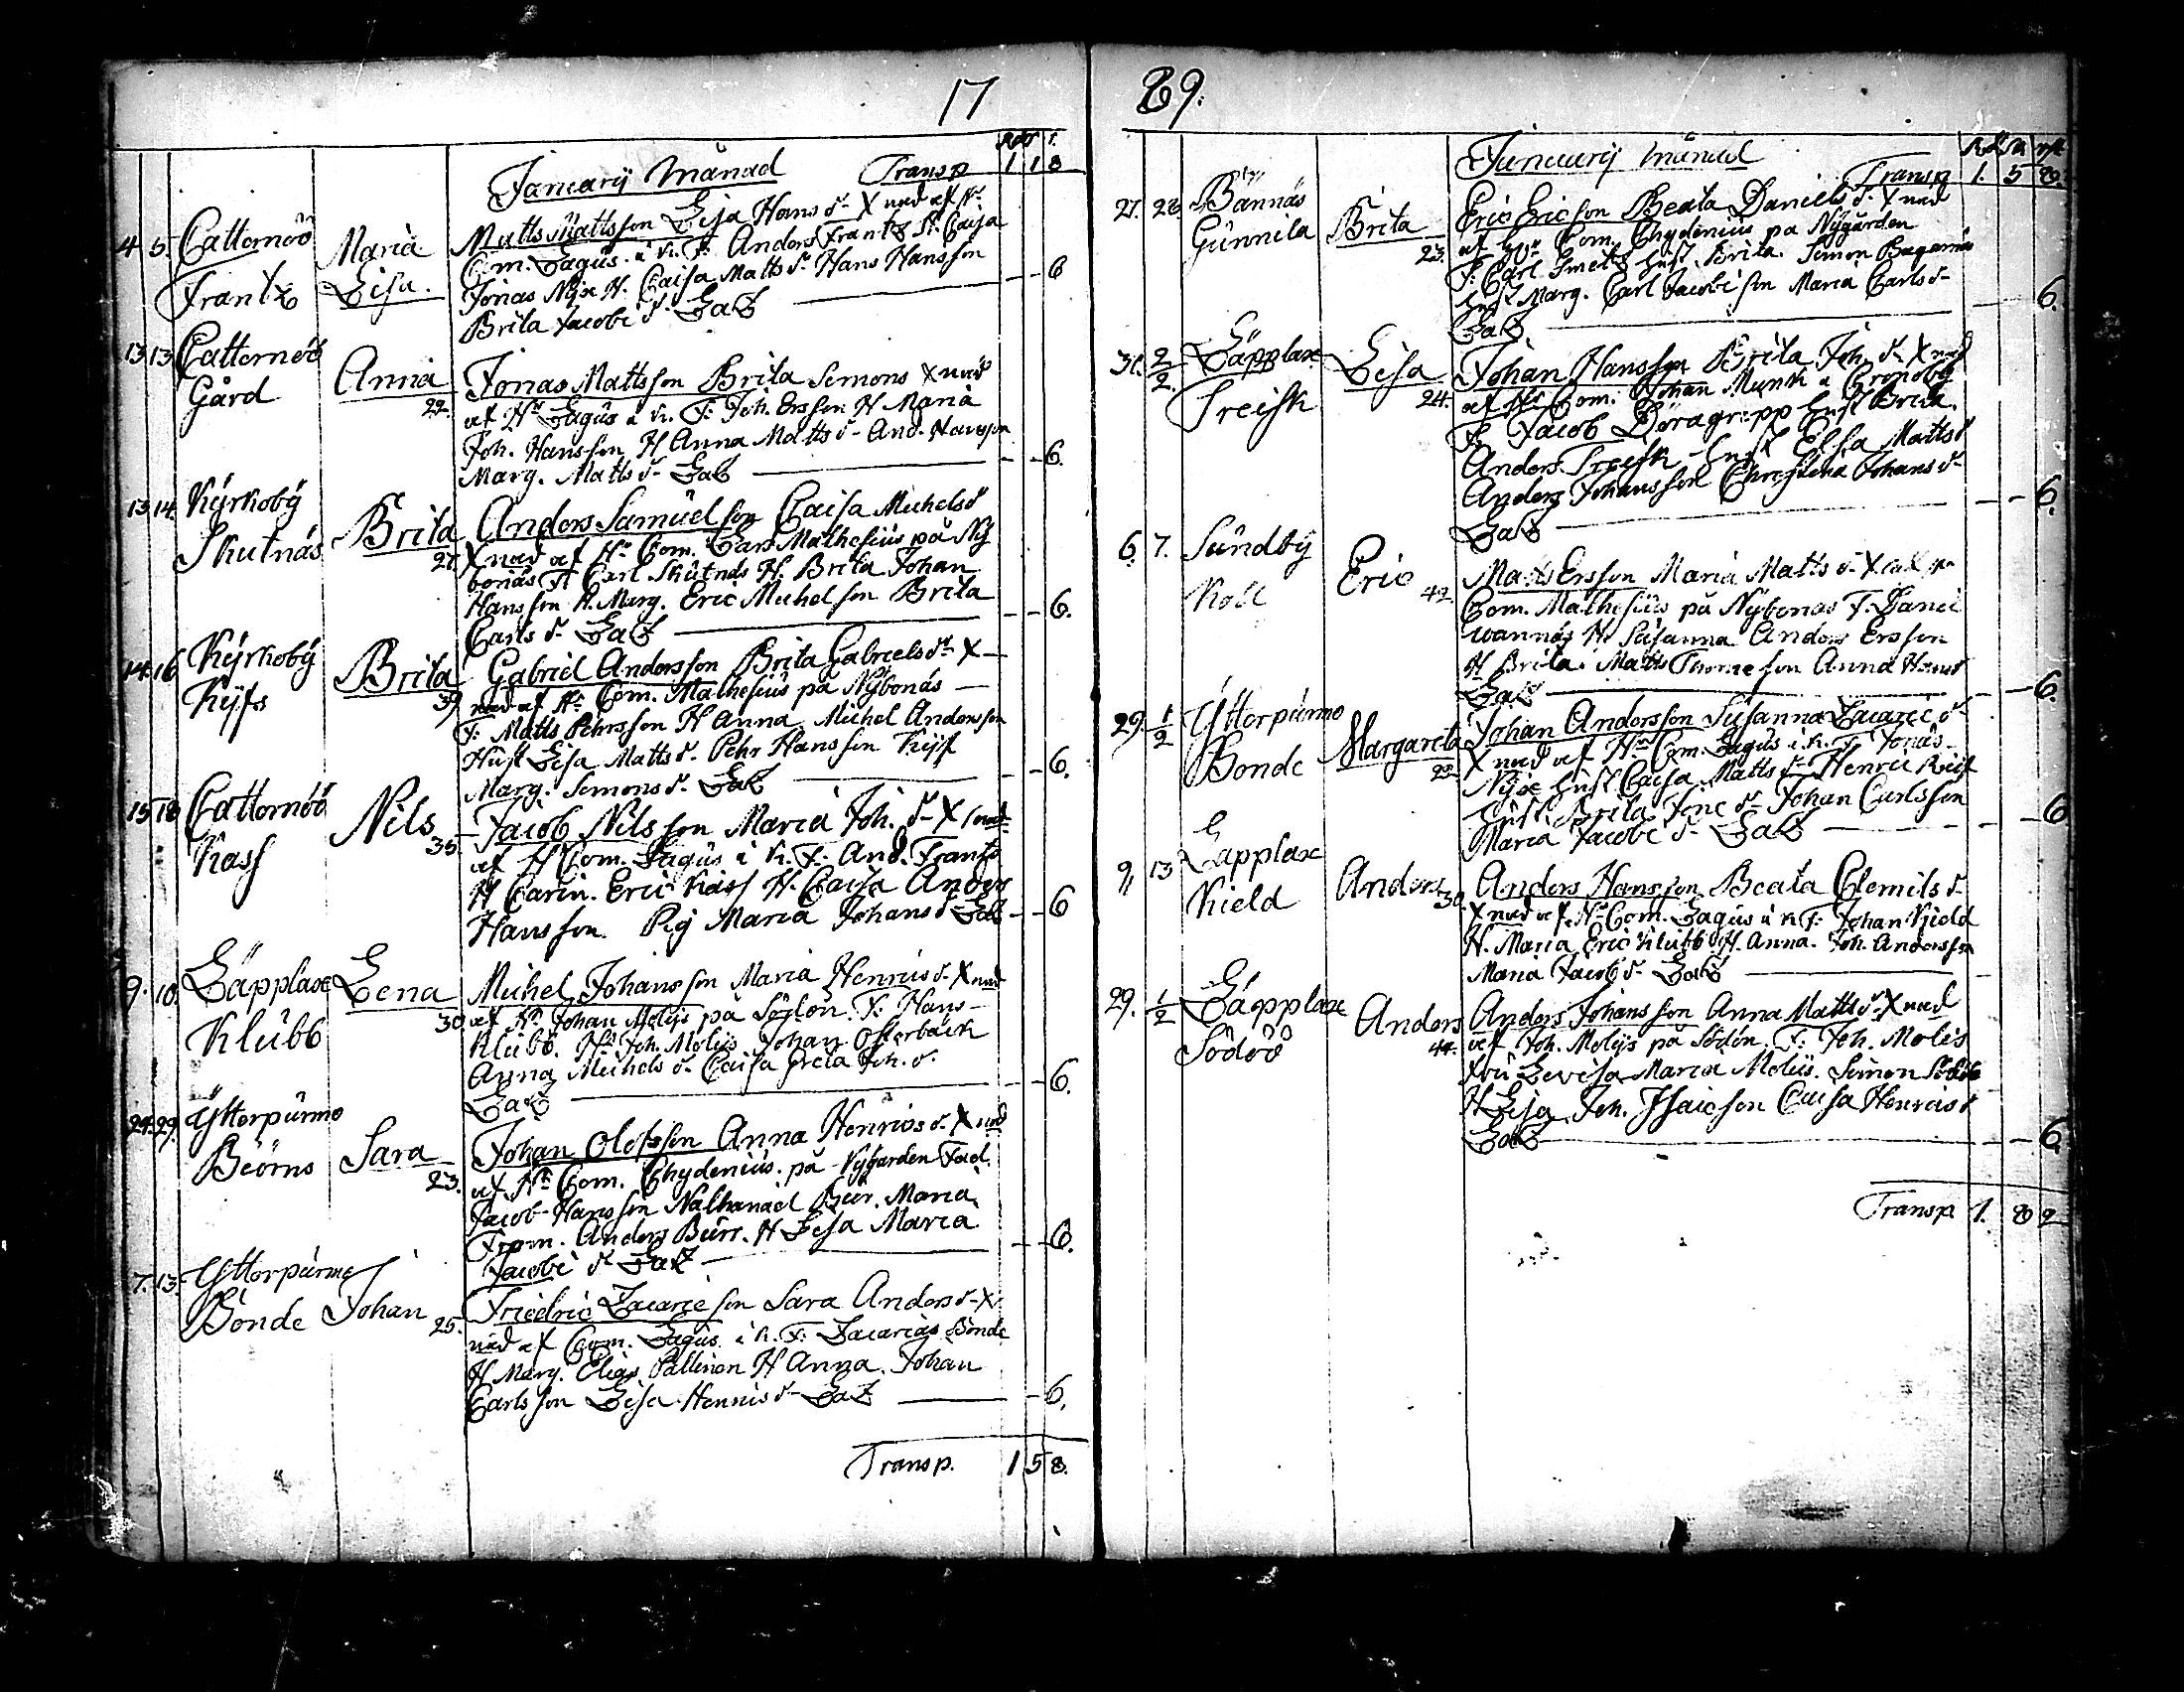 17
Rdr s.
January Månad Transp 1 1 8
4. 5. Cattornöö Frantz
Maria Lisa.
Matts Mattsson Lisa Hans dr X nad af Hr
Com. Lagus i K. F. Anders Frantz H. Caisa
Jonas Nyse H. Caisa Matts dr Hans Hansson
Brita Jacobs dr Lab — 6
13. 13 Cattornöö Gård
Anna 22.
Jonas Mattsson Brita Simons X nad
af Hr Lagus i K. F. Joh. Ersson H Maria
Joh. Hansson H Anna Matts dr And. Hansson
Marg. Matts dr Lab — 6.
13. 14. Kyrkoby Skutnäs
Brita 27.
Anders Samuelson Caisa Michels dr
X nad af Hr Com. Mathesius på Ny
bonäs F. Carl Skutnäs H. Brita Johan
Hansson H. Marg. Eric Michelson Brita
Carls dr Lab — 6.
14. 16 Kyrkoby Kyfs
Brita 39
Gabriel Andersson Brita Gabriels dr X
nad af Hr Com. Mathesius på Nybonäs
F. Matts Pehrsson H Anna Michel Andersson
Hust Lisa Matts dr. Pehr Hansson Kyf
Marg. Simons dr. Lab — 6.
15 18 Cattornöö Kass
Nils 35.
Jacob Nilsson Maria Joh. dr X nad
af H Com. Lagus i K. F. And. Frantz
H Carin. Eric Kass H. Caisa Anders
Hansson Pig Maria Johans dr Lab — 6
9. 10. Läpplax Klubb
Lena 30.
Michel Johansson Maria Henrics dr X nad
af Hr Johan Moliis på F. Hans
Klubb. Hr Joh. Moliis Johan Österback
Anna Michels dr Caisa Greta Joh. dr
Lab — 6.
24. 29. Ytterpurmo Beörns
Sara 23.
Johan Olofsson Anna Henrics dr X nad
af Hr Com. Chydenius på Nygården Fad.
Jacob Hansson Nathanael Bur. Maria
Anders Burr. H Lisa Maria
Jacobs dr Lab — 6.
7. 13. Ytterpurmo Bonde
Johan 25.
Friedric Zacarieson Sara Anders dr X
nad af Com. Lagus i K. F. Zacarias Bonde
H Marg. Elias Pallinen H Anna Johan
Carlsson Lisa Henrics dr Lab — 6.
Transp. 1 5 8.
89.
Rd Sk rst
January Månad
Transp 1. 5 8.
27. 28. Bännäs Gunnila
Brita 23.
Eric Ericson Beata Daniels dr. X nad
af Hr Com. Chydenius på Nygården
F. Carl Smeds hust. Brita Simon Bagarnäs
hust Marg. Carl Jacobsson Maria Carls dr
Lab — 6.
31. 2/2. Läpplax Treisk
Lisa 24.
Johan Hansson Brita Joh. dr X nad
af Hr Com. Johan Munk a Cronoby
F. Jacob Döragripp hust Brita.
Anders Treisk hust Elsa Matts dr
Anders Johansson Christina Johans dr
Lab — 6.
6. 7. Sundby Koll
Eric 42.
Matts Ersson Maria Matts dr X nad
Com. Mathesius på Nybonäs F. Daniel
H. Susanna Anders Ersson
H Brita. Matts Thomeson Anna Hans dr
Lab — 6.
29. 1/2 Ytterpurmo Bonde
Margareta 22.
Johan Andersson Susanna Zacarie dr
X nad af Hr Com. Lagus i K. F. Jonas
Nyse hust Caisa Matts dr Henric
hust. Brita dr Johan Carlsson
Maria Jacobs dr Lab — 6
9. 13 Lapplax Kield
Anders 30.
Anders Hansson Beata Clemits dr.
X nad af Hr Com. Lagus i K F. Johan Kield
H. Maria Eric Klubb H. Anna. Joh. Andersson
Maria Jacobs dr Lab —
29. 1/2 Läpplax Södöö
Anders 44.
Anders Johansson Anna Matts dr X nad
af Joh. Moliis på Södön. F. Joh. Moliis
Fru Lovisa Maria Moliis. Simon Södöö
H Lisa Joh. Isaicson Caisa Henrics dr
Lab — 6.
Transp 1. 8 2